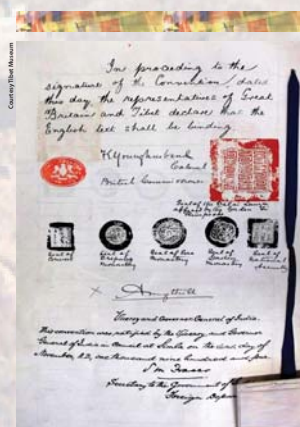 Courtesy Tibet Museum
In proceeding to the
signature of the Convention, dated
this day, the representatives of Great
Britain and Tibet declare that the
English text shall be binding.
F. E. Younghusband
Colonel
British Commissioner
Seal of the Dalai Lama
affixed by the
Seal of
Council
Seal of
Drepung
Monastery
Seal of Sera
Monastery
Seal of
Monastery
Seal of
National
Assembly
Ampthill
Viceroy and Governor General of India.
This convention was ratified by the Viceroy and Governor
General of India in Council at Simla on the day of
November, A.D., one thousand nine hundred and four.
S M Fraser
Secretary to the Government of
Foreign